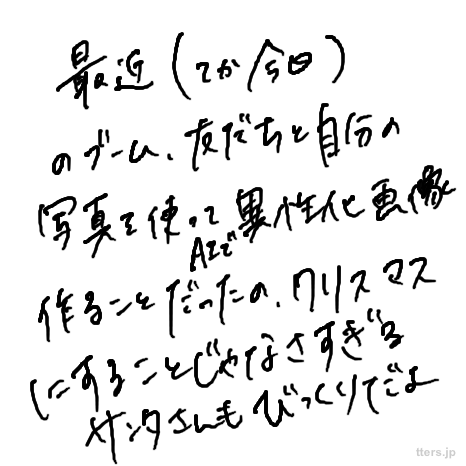 最近(てか今日)
のブーム、友だちと自分の
写真を使ってAIで異性化画像
作ることだったの、クリスマス
にすることじゃなさすぎる
サンタさんもびっくりだよ
tters.jp